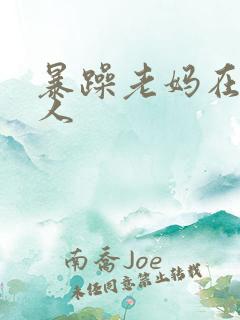 暴躁老妈在
人
南乔Joe
未经同意禁止转载